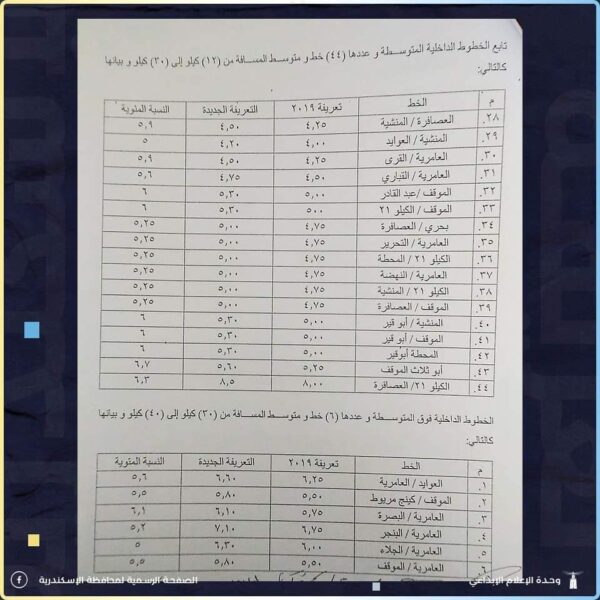 تابع الخطوط الداخلية المتوسطة و عددها (٤٤) خط و متوسط المسافة من (١٢) كيلو إلى (٣٠) كيلو و بيانها
كالتالي:
م الخط تعريفة ٢٠١٩ التعريفة الجديدة النسبة المئوية
٢٨. العصافرة / المنشية ٤,٢٥ ٤,٥٠ ٥,٩
٢٩. المنشية / العوايد ٤,٠٠ ٤,٢٠ ٥
٣٠. العامرية / القرى ٤,٢٥ ٤,٥٠ ٥,٩
٣١. العامرية / القباري ٤,٥٠ ٤,٧٥ ٥,٦
٣٢. الموقف / عبد القادر ٥,٠٠ ٥,٣٠ ٦
٣٣. الموقف / الكيلو ٢١ ٥٠٠ ٥,٣٠ ٦
٣٤. بحري / العصافرة ٤,٧٥ ٥,٠٠ ٥,٢٥
٣٥. العامرية / التحرير ٤,٧٥ ٥,٠٠ ٥,٢٥
٣٦. الكيلو ٢١ / المحطة ٤,٧٥ ٥,٠٠ ٥,٢٥
٣٧. العامرية / النهضة ٤,٧٥ ٥,٠٠ ٥,٢٥
٣٨. الكيلو ٢١ / المنشية ٤,٧٥ ٥,٠٠ ٥,٢٥
٣٩. الموقف / العصافرة ٤,٧٥ ٥,٠٠ ٥,٢٥
٤٠. المنشية / أبو قير ٥,٠٠ ٥,٣٠ ٦
٤١. الموقف / أبو قير ٥,٠٠ ٥,٣٠ ٦
٤٢. المحطة أبوقير ٥,٠٠ ٥,٣٠ ٦
٤٣. أبو تلات الموقف ٥,٢٥ ٥,٦٠ ٦,٧
٤٤. الكيلو ٢١/ العصافرة ٨,٠٠ ٨,٥ ٦,٣
الخطوط الداخلية فوق المتوسطة و عددها (٦) خط و متوسط المسافة من (٣٠) كيلو إلى (٤٠) كيلو و بيانها
كالتالي:
م الخط تعريفة ٢٠١٩ التعريفة الجديدة النسبة المئوية
١. العوايد / العامرية ٦,٢٥ ٦,٦٠ ٥,٦
٢. الموقف / كينج مريوط ٥,٥٠ ٥,٨٠ ٥,٥
٣. العامرية / البصرة ٥,٧٥ ٦,١٠ ٦,١
٤. العامرية / البنجر ٦,٧٥ ٧,١٠ ٥,٢
٥. العامرية / الجلاء ٦,٠٠ ٦,٣٠ ٥
٦. العامرية / الموقف ٥,٥٠ ٥,٨٠ ٥,٥
وحدة الإعلام الإبداعي
الصفحة الرسمية لمحافظة الإسكندرية